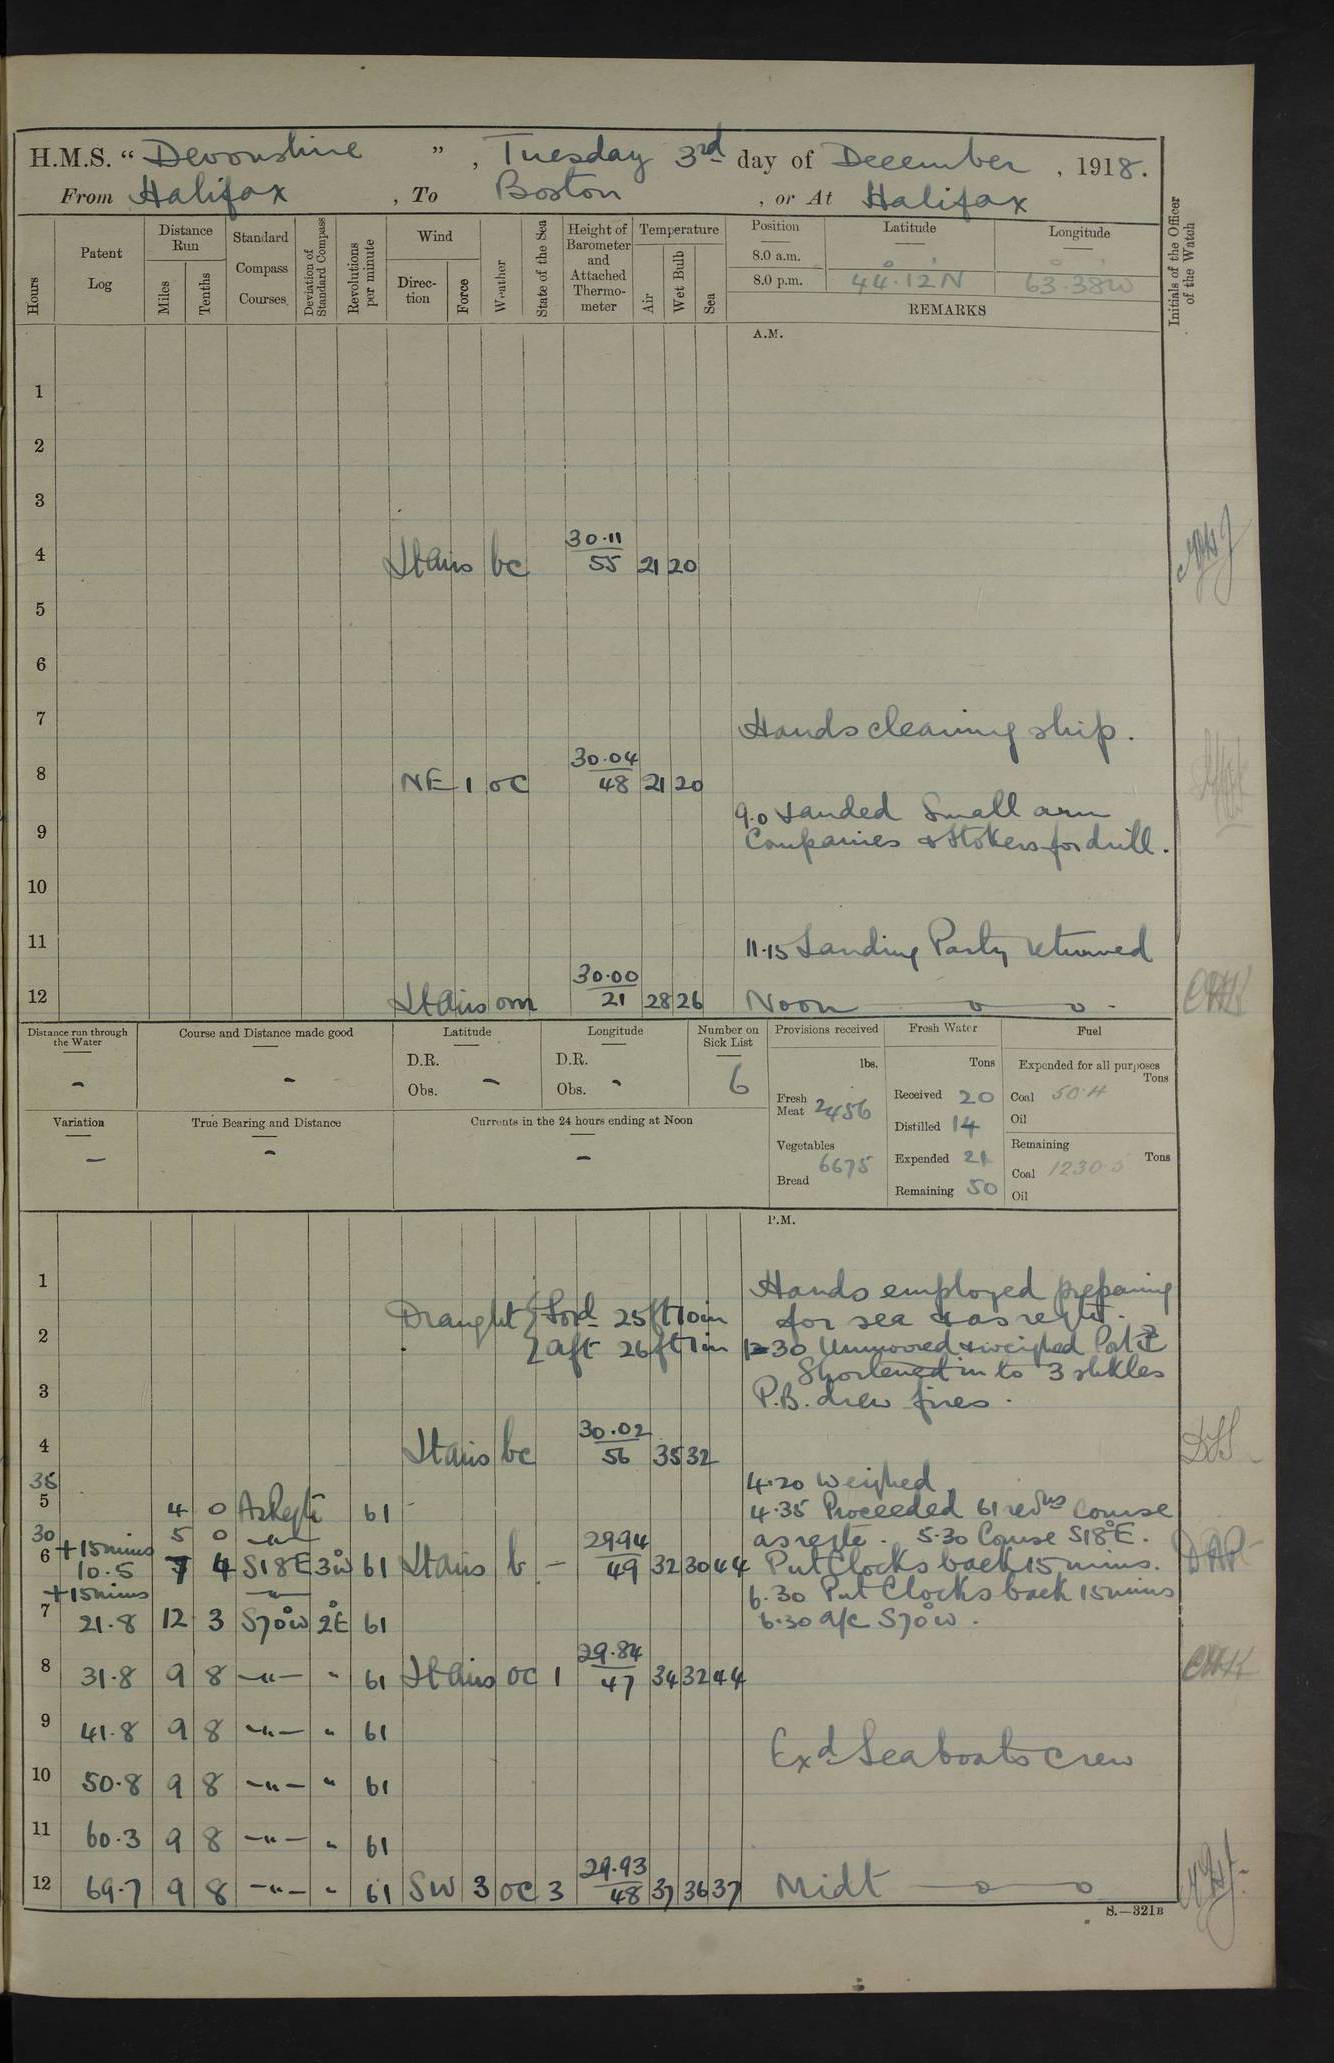 H.M.S. “ Devonshire ” , Tuesday 3rd day of December , 1918.
From Halifax , To Boston , or At Halifax
Hours
Patent Log
Distance Run
Miles
Tenths
Standard Compass Courses.
Deviation of Standard Compass
Revolutions per minute
Wind
Direction
Force
Weather
State of the Sea
Height of Barometer and Attached Thermometer
Temperature
Air
Wet Bulb
Sea
Position
Latitude
Longitude
8.0 a.m.
8.0 p.m. 44.12N 63.38W
REMARKS
Initials of the Officer of the Watch
A.M.
1
2
3
4 Ltairs bc 30.11 55 21 20
5
6
7 Hands cleaning ship.
8 NE 1 oc 30.04 48 21 20
9.0 Landed Small arm
9 Companies & Stokers for drill.
10
11 11.15 Landing Party returned
12 Ltairs om 30.00 21 28 26 Noon
Distance run through the Water
-
Course and Distance made good
-
Latitude
D.R.
Obs. -
Longitude
D.R.
Obs. -
Number on Sick List
6
Provisions received
lbs.
Fresh Meat 2456
Vegetables 6675
Bread
Fresh Water
Tons
Received 20
Distilled 14
Expended 21
Remaining 50
Fuel
Expended for all purposes
Tons
Coal 50.4
Oil
Remaining
Tons
Coal 1230.5
Oil
Variation
-
True Bearing and Distance
-
Currents in the 24 hours ending at Noon
-
P.M.
1 Hands employed preparing
Draught { Ford 25ft 10in for sea & as reqte.
2 { aft 26ft 1in 12.30 Unmoored & weighed Port
Shortened in to 3 shkles
3 P.B. drew fires.
4 Ltairs bc 30.02 56 35 32
4.20 Weighed
35
5 4 0 As Reqte 61 4.35 Proceeded 61 revns Course
30 5 0 -"- as reqte. 5.30 Course S18°E.
6 +15 mins 10.5 7 4 S18E 3°W 61 Ltairs b - 29.94 49 32 30 44 Put Clocks back 15 mins.
+15 mins 6.30 Put Clocks back 15 mins
7 21.8 12 3 S70°W 2°E 61 6.30 a/c S70°W.
8 31.8 9 8 -"- " 61 Ltairs oc 1 29.84 47 34 32 44
9 41.8 9 8 -"- " 61
Exd Seaboats Crew
10 50.8 9 8 -"- " 61
11 60.3 9 8 -"- " 61
12 69.7 9 8 -"- " 61 SW 3 oc 3 29.93 48 37 36 37 Midt
S.—321B